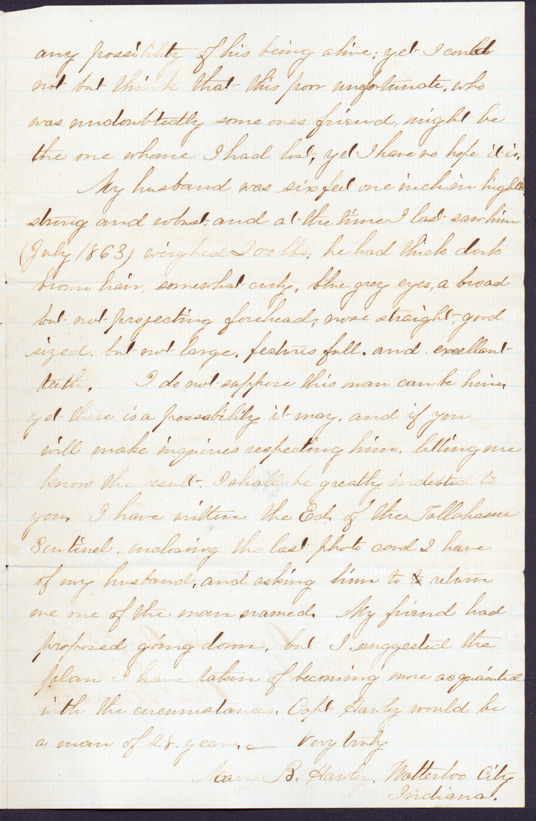 any possibility of his being alive; yet I could
not but think that this poor unfortunate, who
was undoubtedly some ones friend, might be
the one whome I had lost, yet I have no hope it is.
My husband was six feet one inch in hight
strong and robust, and at the time I last saw him
(July 1863) weighed 200 lbs; he had thick dark
brown hair, somewhat curly, blue grey eyes, a broad
but not projecting forehead, nose straight, good
sized, but not large, features full, and excellent
teeth. I do not suppose this man can be him,
yet there is a possability it may, and if you
will make inquiries respecting him, letting me
know the result, I shall be greatly indebted to
you. I have written the Ed. of the Tallahassee
Sentinel, inclosing the last photo card I have
of my husband, and asking him to return
me one of the man named. My friend had
proposed going down, but I suggested the
plan I have taken of becoming more acquainted
with the circumstances. Capt would be
a man of 28 years. — Very truly
Mary B. Watterloo City
Indiana.